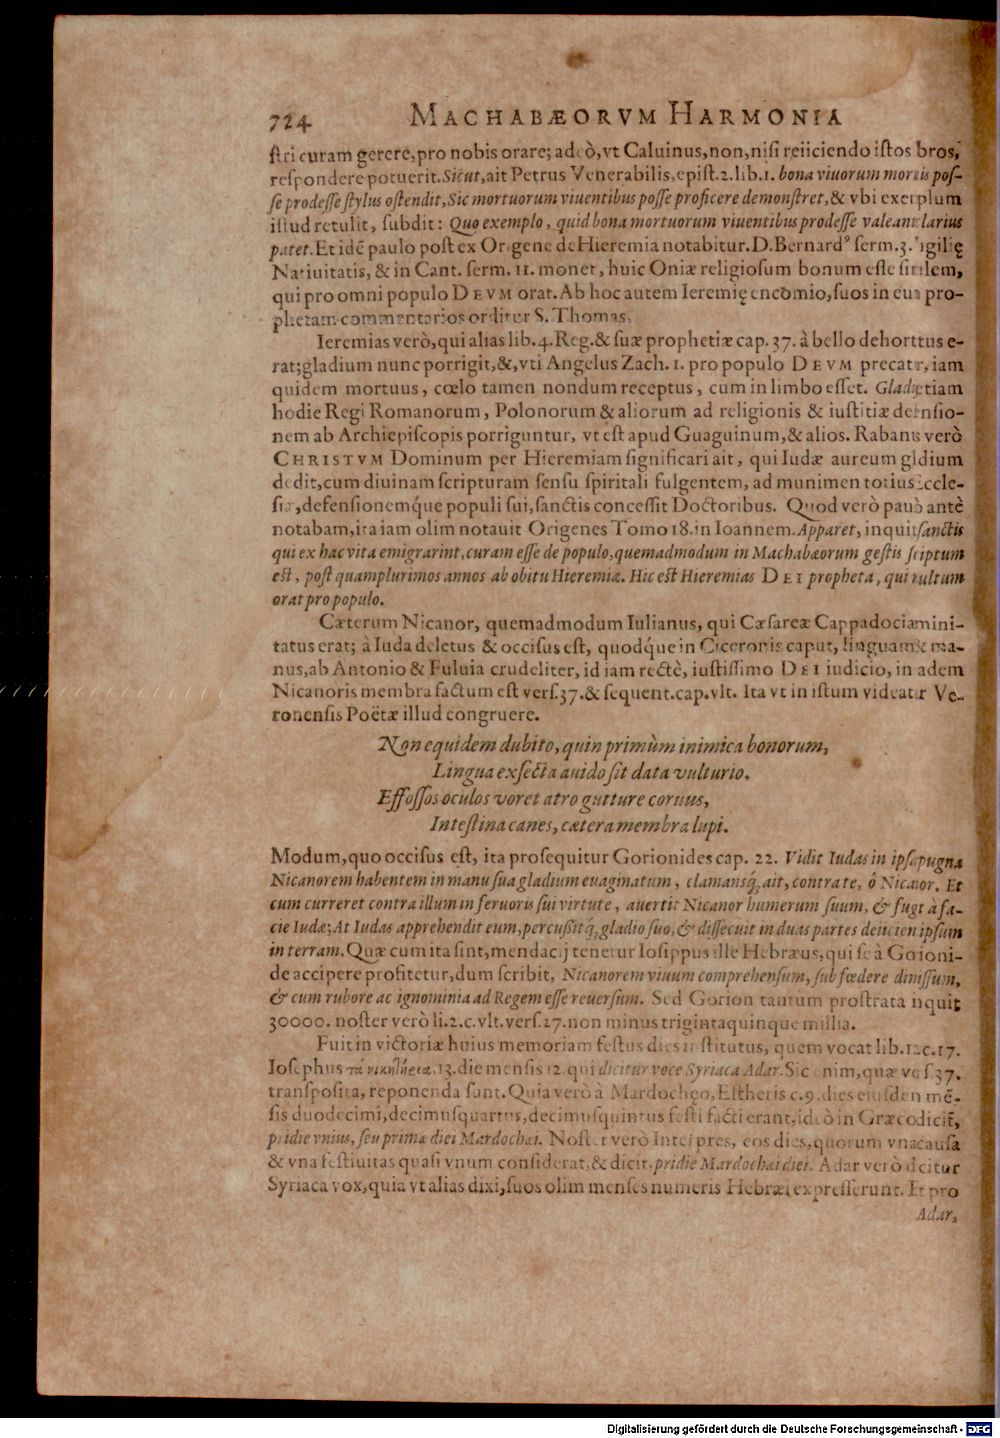 724 MACHABÆORVM HARMONIA
ſtri curam gerere, pro nobis orare; adeò, vt Caluinus, non, niſi reiiciendo iſtos bros,
reſpondere potuerit. Sicut, ait Petrus Venerabilis, epiſt. 2. lib. 1. bona viuorum mortuis poſ-
ſe prodeſſe ſtylus oſtendit, Sic mortuorum viuentibus poſſe proficere demonſtret, & vbi exemplum
iſtud retulit, ſubdit: Quo exemplo, quid bona mortuorum viuentibus prodeſſe valeant larius
patet. Et idē paulo poſt ex Origene de Hieremia notabitur. D. Bernardꝰ ſerm. 3. Vigilię
Natiuitatis, & in Cant. ſerm. 11. monet, huic Oniæ religioſum bonum eſſe ſimilem,
qui pro omni populo DEVM orat. Ab hoc autem Ieremię encomio, ſuos in eum pro-
phetam commentarios orditur S. Thomas.
Ieremias verò, qui alias lib. 4. Reg. & ſuæ prophetiæ cap. 37. à bello dehortatus e-
rat; gladium nunc porrigit, &, vti Angelus Zach. 1. pro populo DEVM precatur, iam
quidem mortuus, cœlo tamen nondum receptus, cum in limbo eſſet. Gladij etiam
hodie Regi Romanorum, Polonorum & aliorum ad religionis & iuſtitiæ defenſio-
nem ab Archiepiſcopis porriguntur, vt eſt apud Guaguinum, & alios. Rabanus verò
CHRISTVM Dominum per Hieremiam ſignificari ait, qui Iudæ aureum gladium
dedit, cum diuinam ſcripturam ſenſu ſpiritali fulgentem, ad munimen totius Eccle-
ſiæ, defenſionemq́ue populi ſui, ſanctis conceſſit Doctoribus. Quod verò paulò antè
notabam, ita iam olim notauit Origenes Tomo 18. in Ioannem. Apparet, inquit, ſanctis
qui ex hac vita emigrarint, curam eſſe de populo, quemadmodum in Machabæorum geſtis ſcriptum
eſt, poſt quamplurimos annos ab obitu Hieremiæ. Hic eſt Hieremias DEI propheta, qui multum
orat pro populo.
Cæterum Nicanor, quemadmodum Iulianus, qui Cæſareæ Cappadociæ mini-
tatus erat; à Iuda deletus & occiſus eſt, quodq́ue in Ciceronis caput, linguam & ma-
nus, ab Antonio & Fuluia crudeliter, id iam rectè, iuſtiſſimo DEI iudicio, in eadem
Nicanoris membra factum eſt verſ. 37. & ſequent. cap. vlt. Ita vt in iſtum videatur Ve-
ronenſis Poëtæ illud congruere.
Non equidem dubito, quin primùm inimica bonorum,
Lingua exſecta auido ſit data vulturio.
Effoſſos oculos voret atro gutture coruus,
Inteſtina canes, cætera membra lupi.
Modum, quo occiſus eſt, ita proſequitur Gorionides cap. 22. Vidit Iudas in ipſa pugna
Nicanorem habentem in manu ſua gladium euaginatum, clamansq́; ait, contra te, ô Nicanor. Et
cum curreret contra illum in feruoris ſui virtute, auertit Nicanor humerum ſuum, & fugit à fa-
cie Iudæ; At Iudas apprehendit eum, percuſſitq́; gladio ſuo, & diſſecuit in duas partes deiiciens ipſum
in terram. Quæ cum ita ſint, mendacij tenetur Ioſippus ille Hebræus, qui ſe à Gorioni-
de accipere profitetur, dum ſcribit, Nicanorem viuum comprehenſum, ſub fœdere dimiſſum,
& cum rubore ac ignominia ad Regem eſſe reuerſum. Sed Gorion tantum proſtrata inquit
30000. noſter verò li. 2. c. vlt. verſ. 27. non minus trigintaquinque millia.
Fuit in victoriæ huius memoriam feſtus dies inſtitutus, quem vocat lib. 12. c. 17.
Ioſephus τὰ νικητήρια, 13. die menſis 12. qui dicitur voce Syriaca Adar. Sic enim, quæ verſ. 37.
tranſpoſita, reponenda ſunt. Quia verò à Mardochęo, Eſtheris c. 9. dies eiuſdem mē-
ſis duodecimi, decimusquartus, decimusquintus feſti facti erant, ideò in Græco dicit,
pridie vnius, ſeu primæ diei Mardochæi. Noſter verò Interpres, eos dies, quorum vna cauſa
& vna feſtiuitas quaſi vnum conſiderat, & dicit, pridie Mardochæi diei. Adar verò dicitur
Syriaca vox, quia vt alias dixi, ſuos olim menſes numeris Hebræi expreſſerunt. Et pro
Adar,
Digitalisierung gefördert durch die Deutsche Forschungsgemeinschaft - DFG